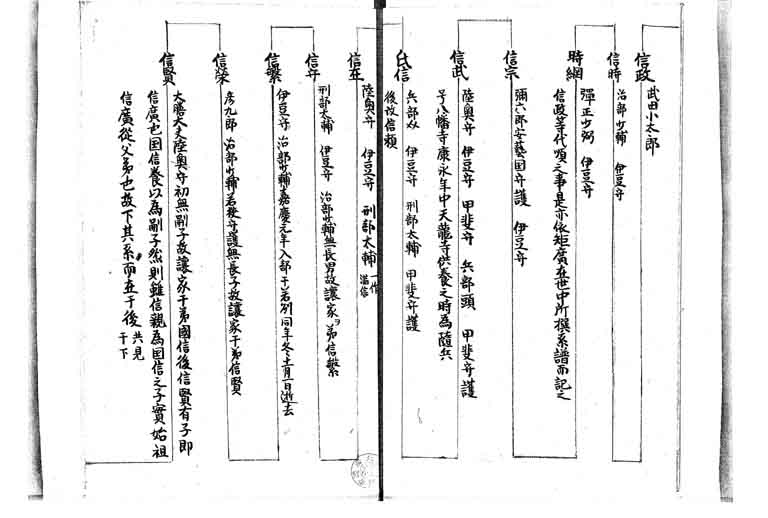 信政
武田小太郎
信時
治部少輔　伊豆守
時綱
彈正少弼　伊豆守
信政等代順之事是亦依矩廣在世中所撰系譜而記之
信宗
彌六郎安藝国守護　伊豆守
信武
陸奥守　伊豆守　甲斐守　兵部頭　甲斐守護
号八幡寺康永年中天龍寺供養之時為隨兵
氏信
兵部　伊豆守　刑部太輔　甲斐守護
後改信頼
信在
陸奥守　伊豆守　刑部太輔　一作満信
信守
刑部太輔　伊豆守　治部少輔無長男故讓家ヲ弟信繁
信繁
伊豆守　治部少輔嘉慶元年入部于若州同年冬十一月一日逝去
信榮
彦九郎　治部少輔若狹守護無長子故讓家于弟信賢
信賢
大膳大夫陸奥守初無嗣子故讓家于弟國信後信賢有子即
信廣也国信養以為嗣子然則雖信親為国信之子實始祖
信廣從父弟也故下其系而在于後
共見
于下